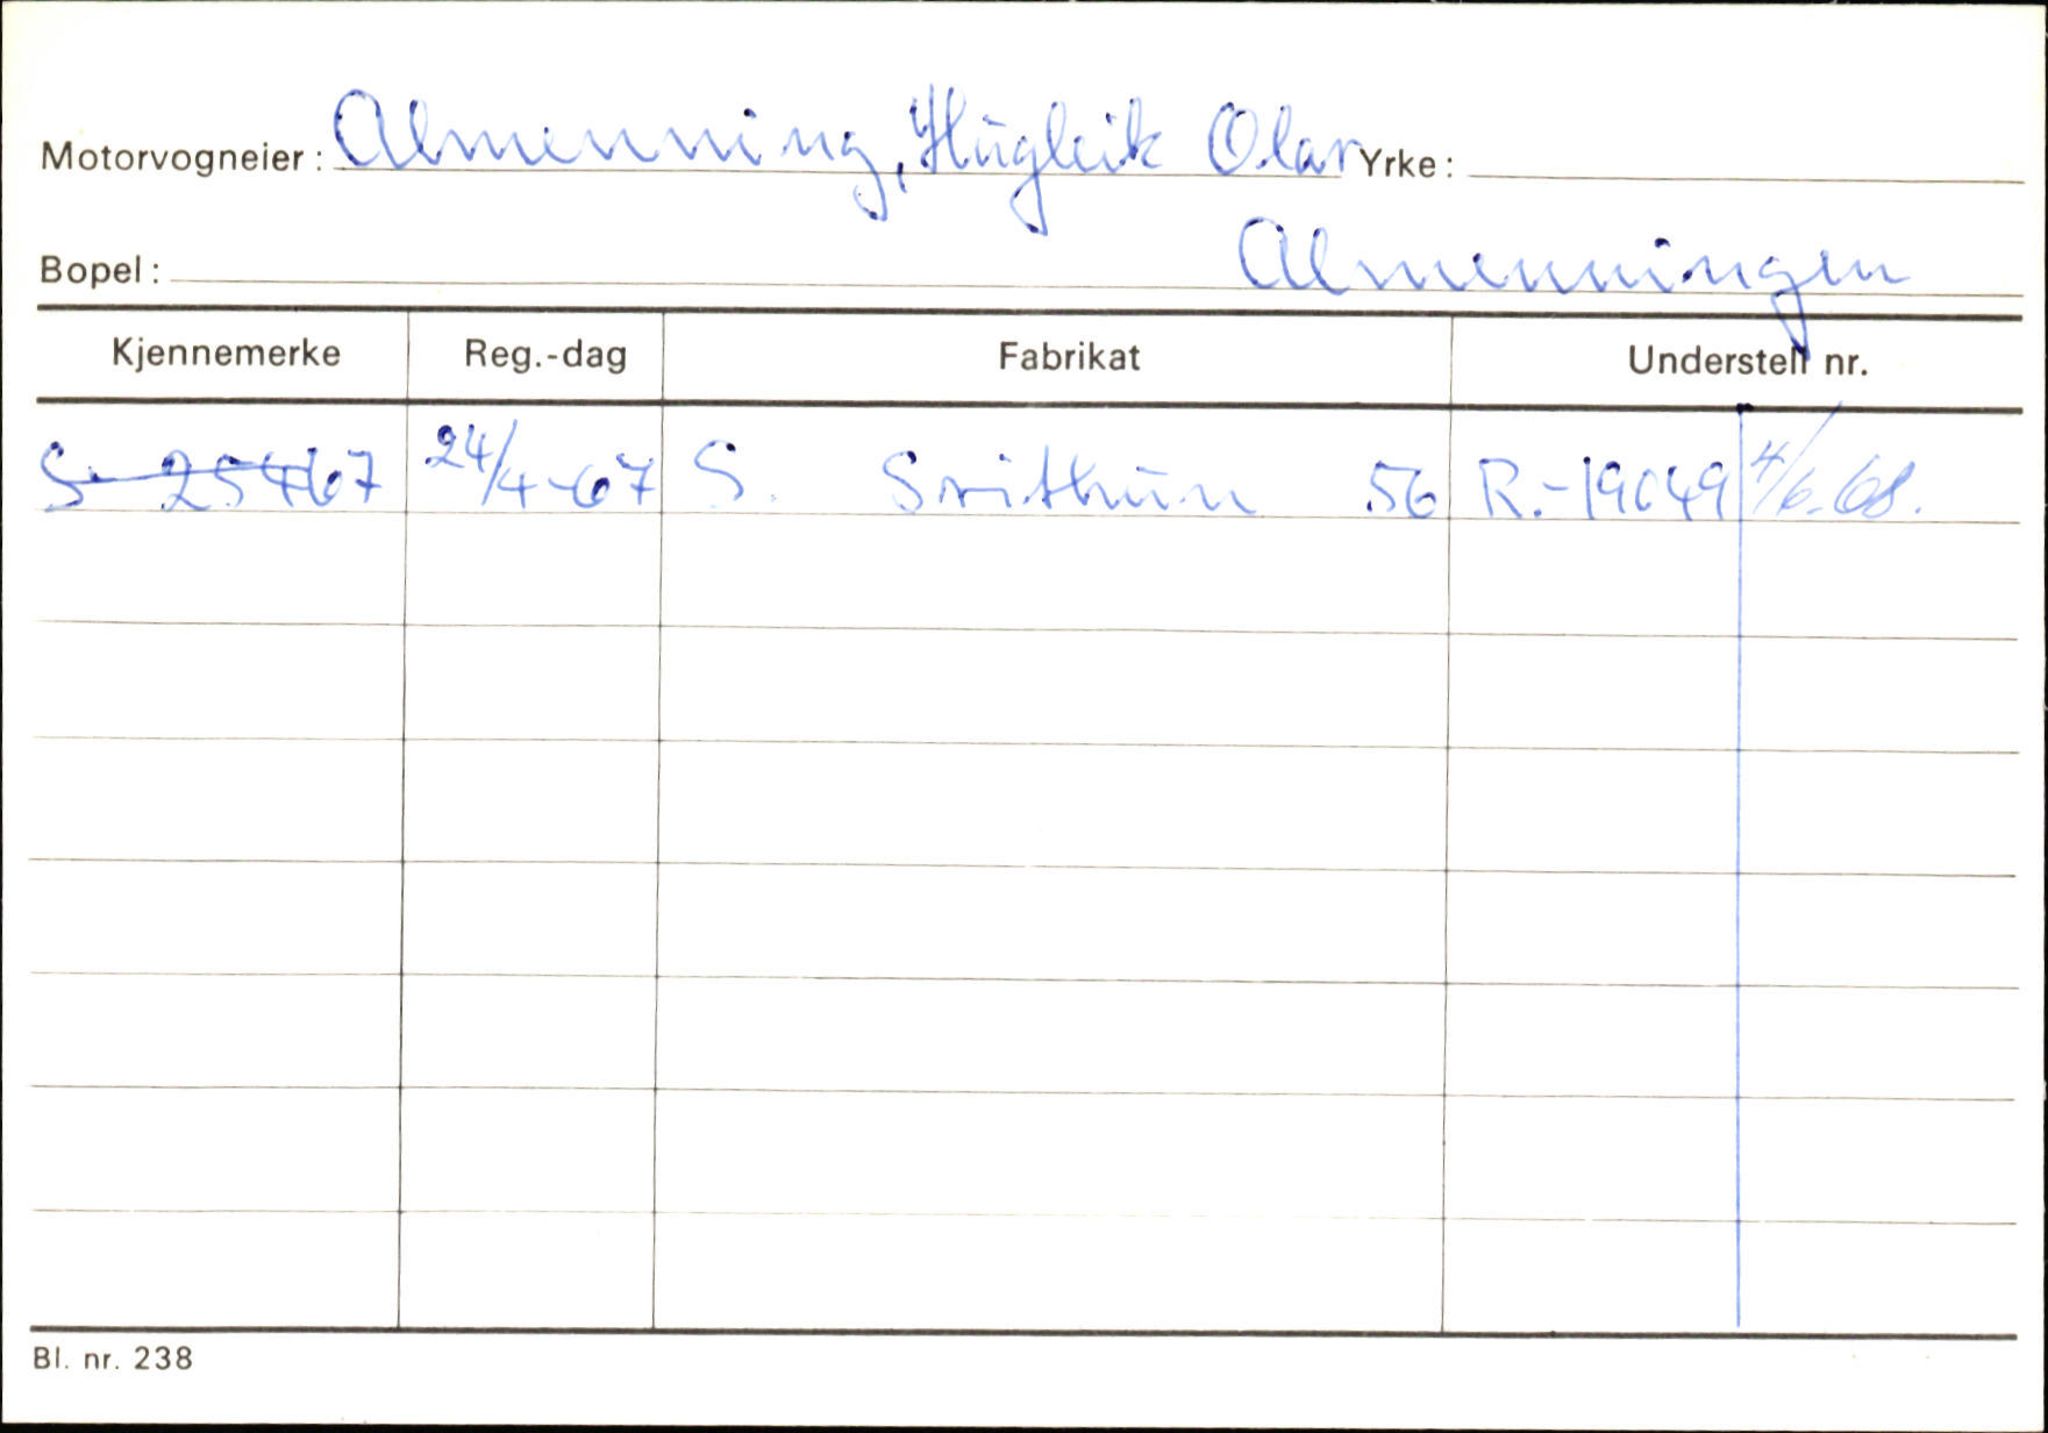 Motorvogneier: Almenning, Hugleik Olav Yrke:
Bopel: Almenningen
Kjennemerke Reg.-dag Fabrikat Understell nr.
S 25467 24/4-67 S. Svithun 56 R.-19049 4/6-68.
Bl. nr. 238